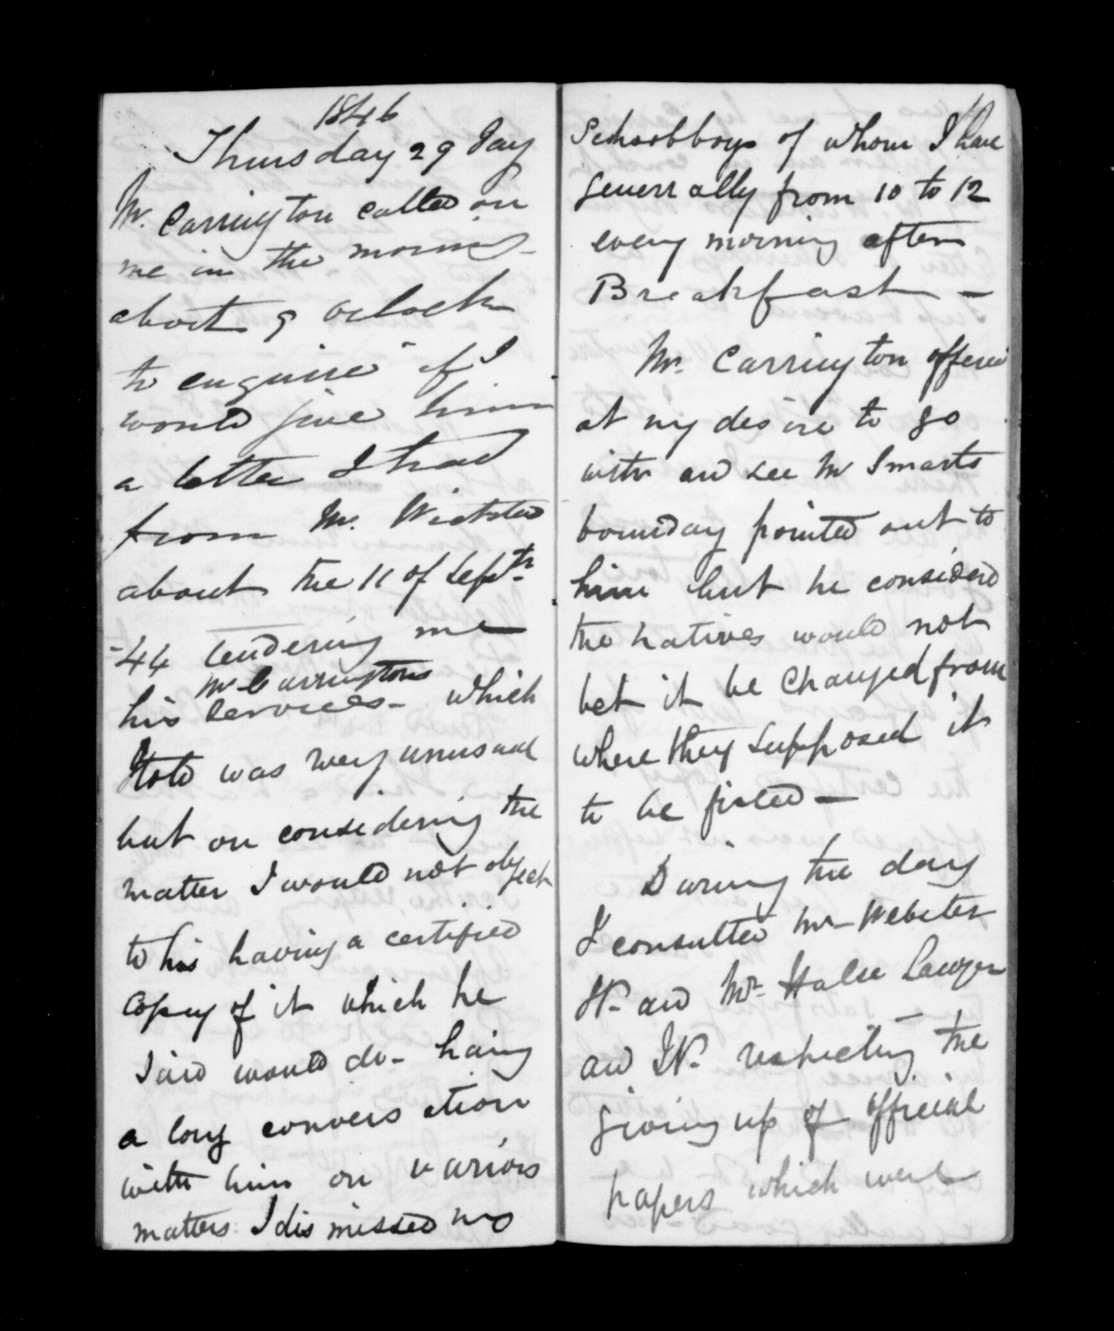 1846
Thursday 29 Jay
Mr. Carrington called on
me in the morning
about 9 oclock
to enquire if I
would give him
a letter I had
from Mr. Wicksted
about the 11 of Septr.
-44 tendering me
Mr Carringtons
his services - which
I told was very unusual
but on considering the
matter I would not object
to his having a certified
copy of it which he
said would do - having
a long conversation
with him on various
matters I dismissed my
Schoolboys of whom I have
generally from 10 to 12
every morning after
Breakfast -
Mr. Carrington offered
at my desire to go
with and see Mr Smarts
bounday pointed out to
him but he considered
the natives would not
let it be changed from
where they supposed it
to be fixted -
During the day
I consulted Mr Webster
and Mr. Lawyer
and respecting the
giving up of official
papers which were